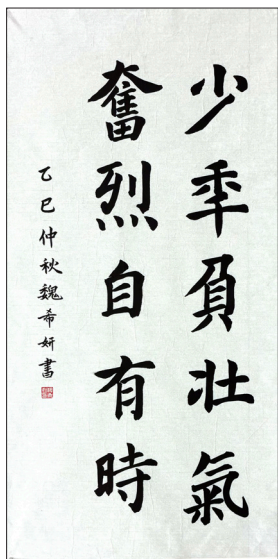 少年負壯氣
奮烈自有時
乙巳仲秋魏希妍書